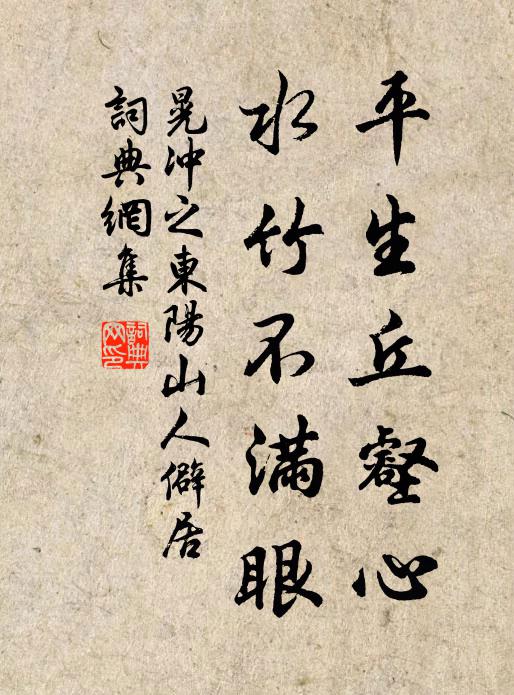 平生丘壑心
水竹不滿眼
晁沖之東陽山人僻居
詞典網集
詞典网印